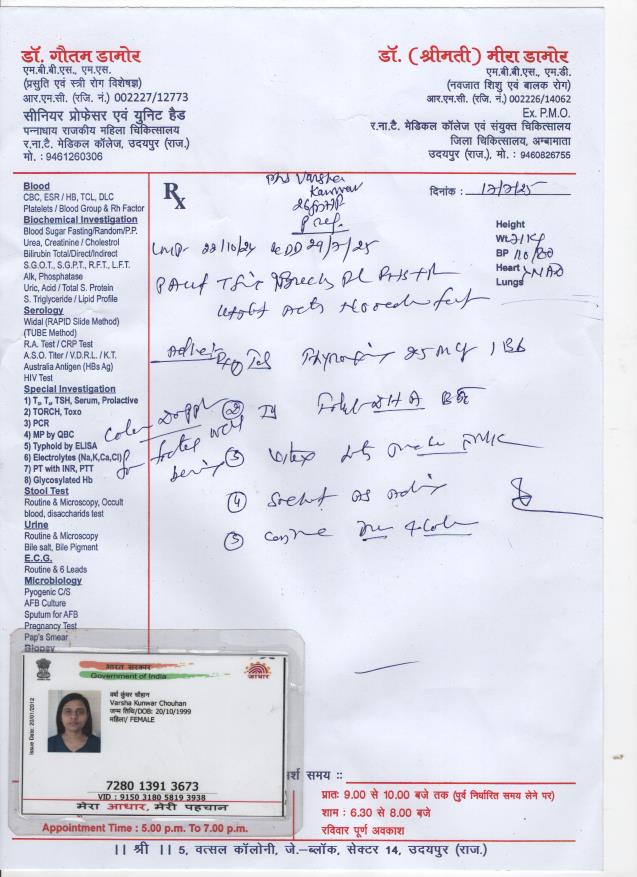 डॉ. गौतम डामोर
एम.बी.बी.एस., एम.एस.
(प्रसुति एवं स्त्री रोग विशेषज्ञ)
आर.एम.सी. (रजि. नं.) 002227/12773
सीनियर प्रोफेसर एवं युनिट हैड
पन्नाधाय राजकीय महिला चिकित्सालय
र.ना.टै. मेडिकल कॉलेज, उदयपुर (राज.)
मो. : 9461260306
डॉ. (श्रीमती) मीरा डामोर
एम.बी.बी.एस., एम.डी.
(नवजात शिशु एवं बालक रोग)
आर.एम.सी. (रजि. नं.) 002226/14062
Ex. P.M.O.
र.ना.टै. मेडिकल कॉलेज एवं संयुक्त चिकित्सालय
जिला चिकित्सालय, अम्बामाता
उदयपुर (राज.), मो. : 9460826755
Blood
CBC, ESR / HB, TCL, DLC
Platelets / Blood Group & Rh Factor
Biochemical Investigation
Blood Sugar Fasting/Random/P.P.
Urea, Creatinine / Cholestrol
Bilirubin Total/Direct/Indirect
S.G.O.T., S.G.P.T., R.F.T., L.F.T.
Alk, Phosphatase
Uric, Acid / Total S. Protein
S. Triglyceride / Lipid Profile
Serology
Widal (RAPID Slide Method)
(TUBE Method)
R.A. Test / CRP Test
A.S.O. Titer / V.D.R.L. / K.T.
Australia Antigen (HBs Ag)
HIV Test
Special Investigation
1) T₃, T₄, TSH, Serum, Prolactive
2) TORCH, Toxo
3) PCR
4) MP by QBC
5) Typhoid by ELISA
6) Electrolytes (Na,K,Ca,Cl)
7) PT with INR, PTT
8) Glycosylated Hb
Stool Test
Routine & Microscopy, Occult
blood, disaccharids test
Urine
Routine & Microscopy
Bile salt, Bile Pigment
E.C.G.
Routine & 6 Leads
Microbiology
Pyogenic C/S
AFB Culture
Sputum for AFB
Pregnancy Test
Pap's Smear
Biopsy
Rx
Varsha
Kanwar
दिनांक :
Height
Wt.
BP 110/80
Heart
Lungs
NAD
LMP 22/10/24 EDD 29/7/25
Advice
Tab Thyroxin 25 mcg 1 BD
Color Doppl
for foetal well
being
② DHA
③
④ Sachet
⑤
भारत सरकार
Government of India
आधार
Issue Date: 20/01/2012
वर्षा कुंवर चौहान
Varsha Kunwar Chouhan
जन्म तिथि/DOB: 20/10/1999
महिला/ FEMALE
7280 1391 3673
VID : 9150 3180 5819 3938
मेरा आधार, मेरी पहचान
र्श समय ::
Appointment Time : 5.00 p.m. To 7.00 p.m.
प्रातः 9.00 से 10.00 बजे तक (पुर्व निर्धारित समय लेने पर)
शाम : 6.30 से 8.00 बजे
रविवार पूर्ण अवकाश
।। श्री ।। 5, वत्सल कॉलोनी, जे.-ब्लॉक, सेक्टर 14, उदयपुर (राज.)